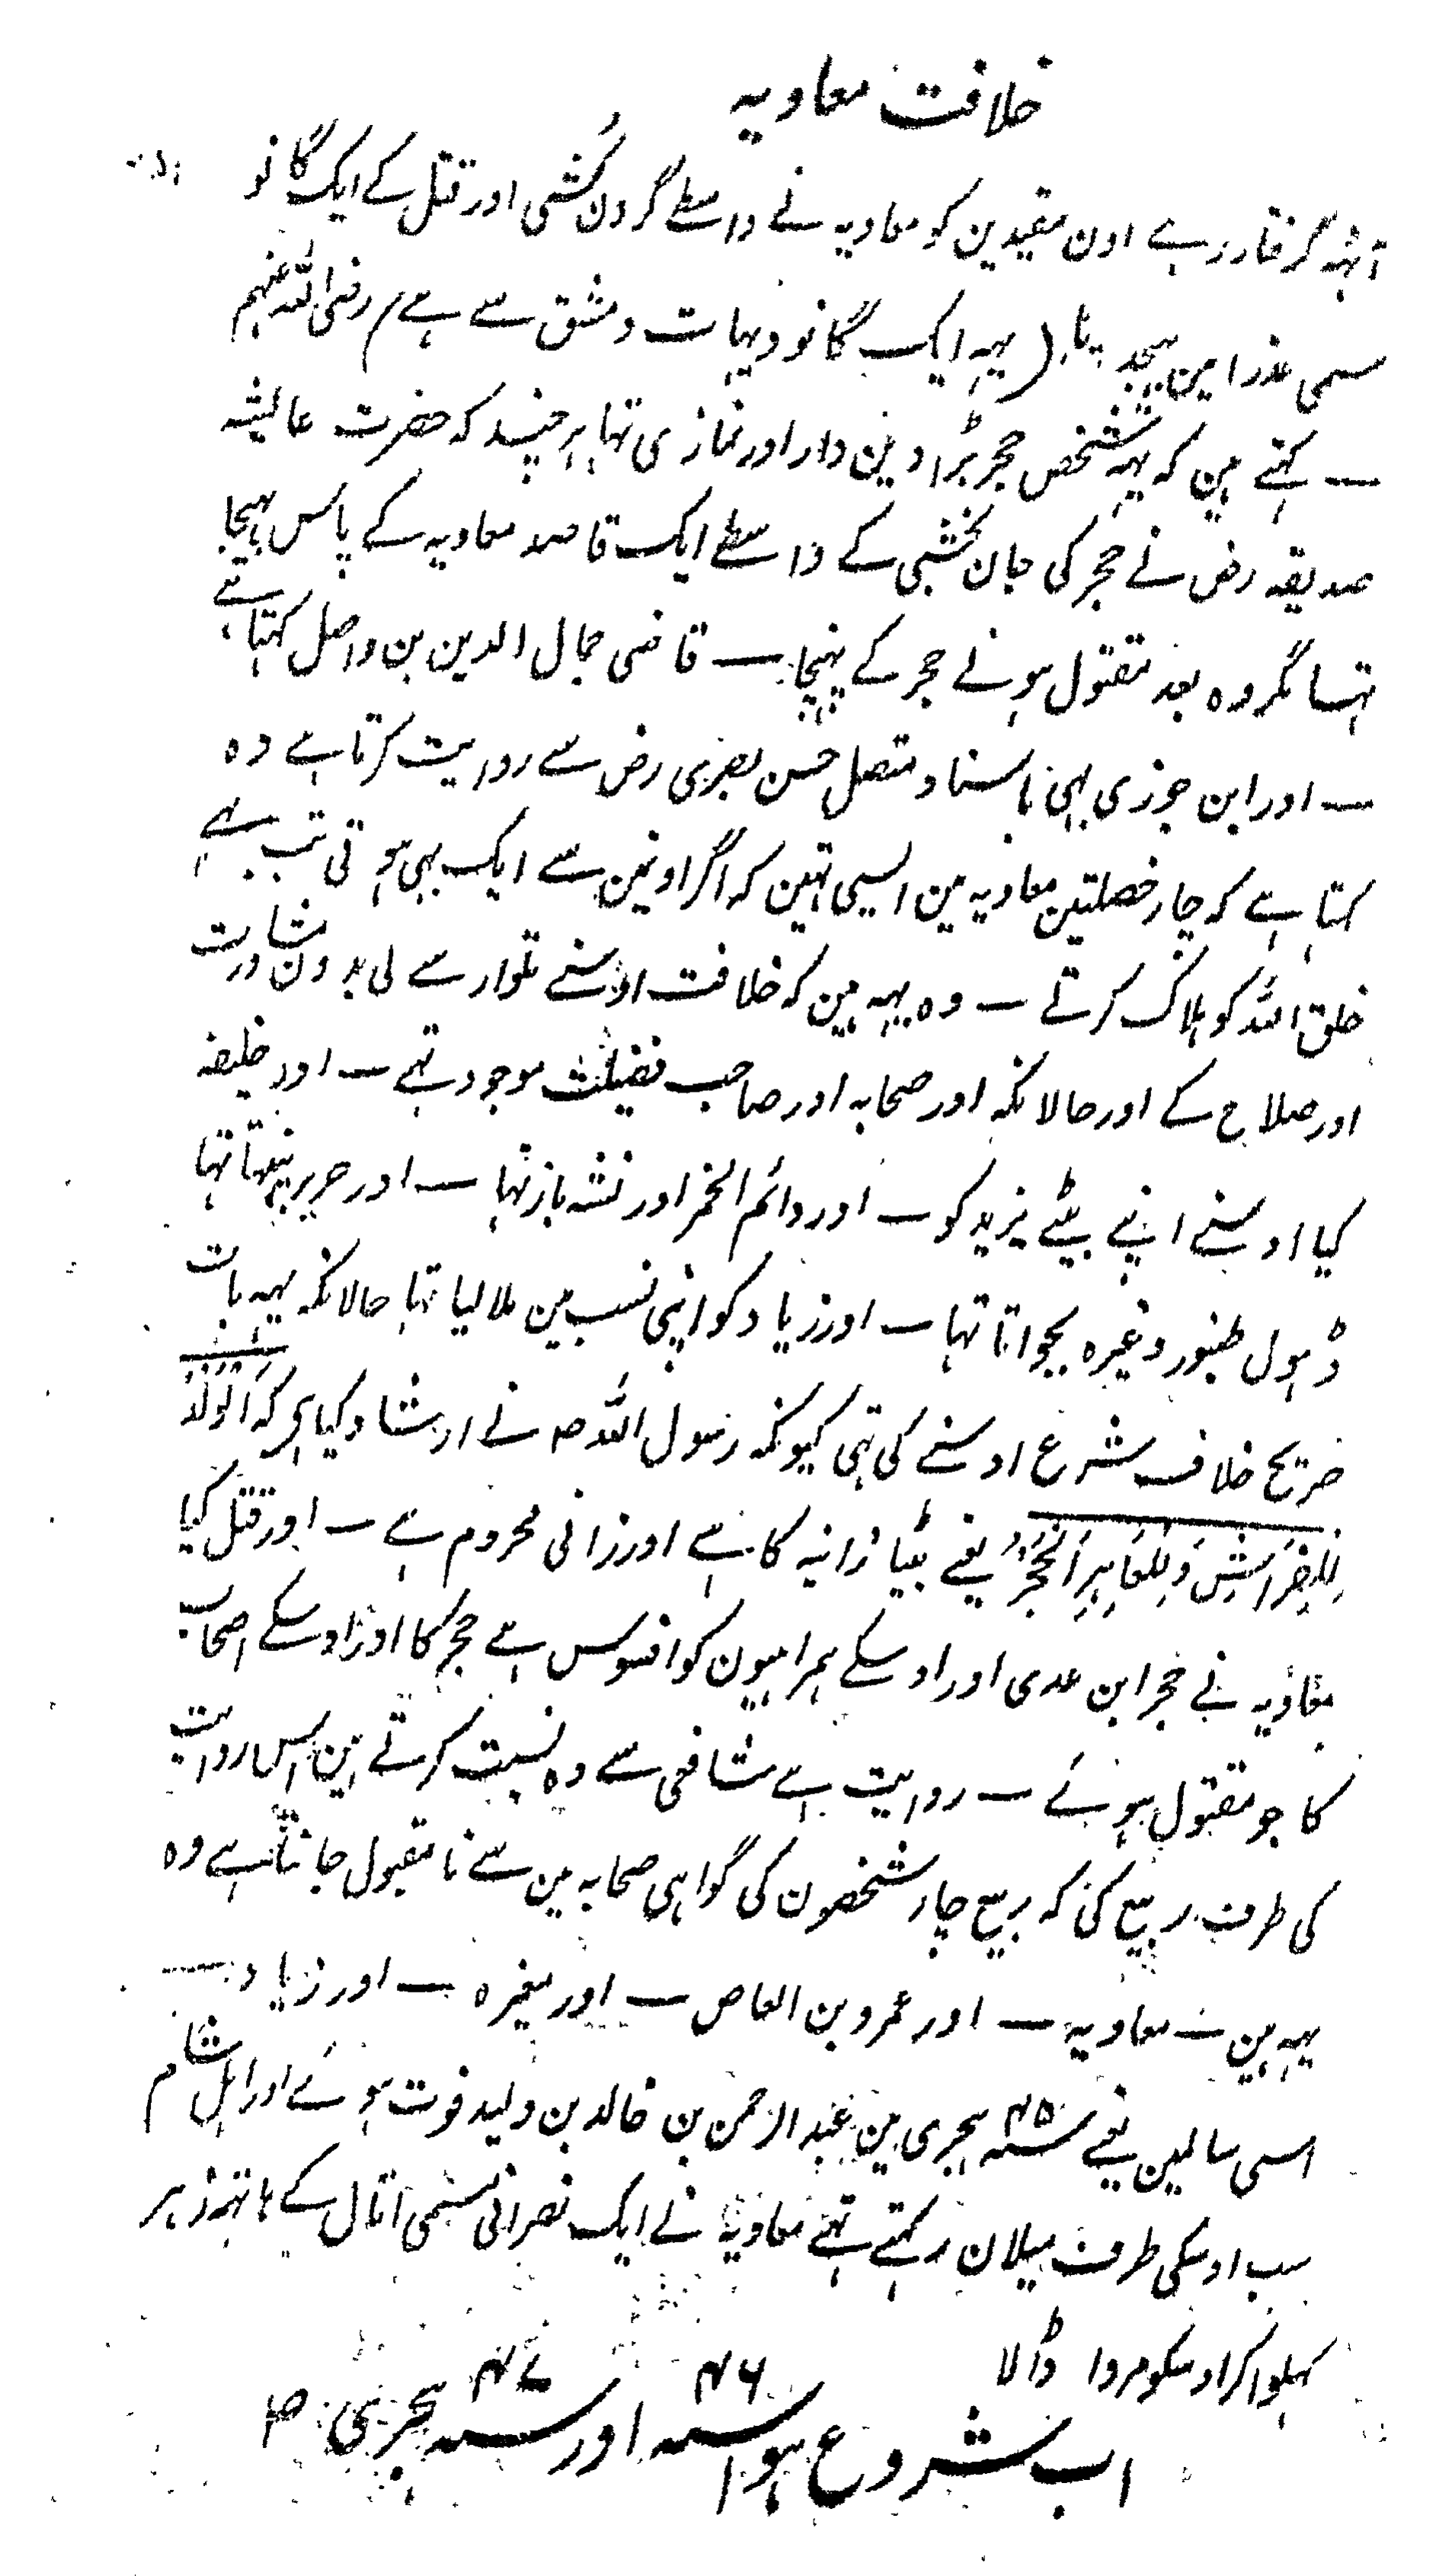 خلافت معاویہ
آٹھہ گرفتار رہے اون مقیدین کو معاویہ نے واسطے گردن کُشی اور قتل کے ایک گانو
مسمی عذرا مین بہیجد یا ( یہہ ایک گانو دیہات دمشق سے ہے ) رضی اللہ عنہم
— کہتے ہین کہ یہہ شخص حجر بڑا دین دار اور نمازی تہا ہر چند کہ حضرت عایشہ
صدیقہ رض نے حجر کی جان بخشی کے واسطے ایک قاصد معاویہ کے پاس بہیجا
تہا مگر وہ بعد مقتول ہونے حجر کے پہنچا — قاضی جمال الدین بن واصل کہتا ہے
— اور ابن جوزی بہی باسناد متصل حسن بصری رض سے روایت کرتا ہے وہ
کہتا ہے کہ چار خصلتین معاویہ مین ایسی تہین کہ اگر اونمین سے ایک بہی ہوتی تب بہی
خلق اللہ کو ہلاک کرتے — وہ یہہ ہین کہ خلافت اوسنے تلوار سے لی بدون مشاورت
اور صلاح کے اور حالانکہ اور صحابہ اور صاحب فضیلت موجود تہے — اور خلیفہ
کیا اوسنے اپنے بیٹے یزید کو — اور دائم الخمر اور نشہ باز تہا — اور حریر پہنتا تہا
ڈہول طنبور وغیرہ بجواتا تہا — اور زیاد کو اپنی نسب مین ملا لیا تہا حالانکہ یہہ بات
صریح خلاف شرع اوسنے کی تہی کیونکہ رسول اللہ ص نے ارشاد کیا ہی کہ اَلْوَلَدُ
لِلْفِرَاشِ وَلِلْعَاہِرِ الْحَجَرُ یعنے بیٹا زانیہ کا ہے اور زانی محروم ہے — اور قتل کیا
معاویہ نے حجر ابن عدی اور اوسکے ہمراہیون کو افسوس ہے حجر کا اور اوسکے اصحاب
کا جو مقتول ہوئے — روایت ہے شافعی سے وہ نسبت کرتے ہین اس روایت
کی طرف ربیع کی کہ ربیع چار شخصون کی گواہی صحابہ مین سے نا مقبول جانتا ہے وہ
یہہ ہین — معاویہ — اور عمرو بن العاص — اور مغیرہ — اور زیاد —
اسی سالمین یعنے سنہ ۴۵ ہجری مین عبد الرحمن بن خالد بن ولید فوت ہوئے اور اہل شام
سب اوسکی طرف میلان رکہتے تہے معاویہ نے ایک نصرانی مسمی اثال کے ہاتہہ زہر
کہلوا کر اوسکو مروا ڈالا
اب شروع ہوا سنہ ۴۶ اور سنہ ۴۷ ہجری ص